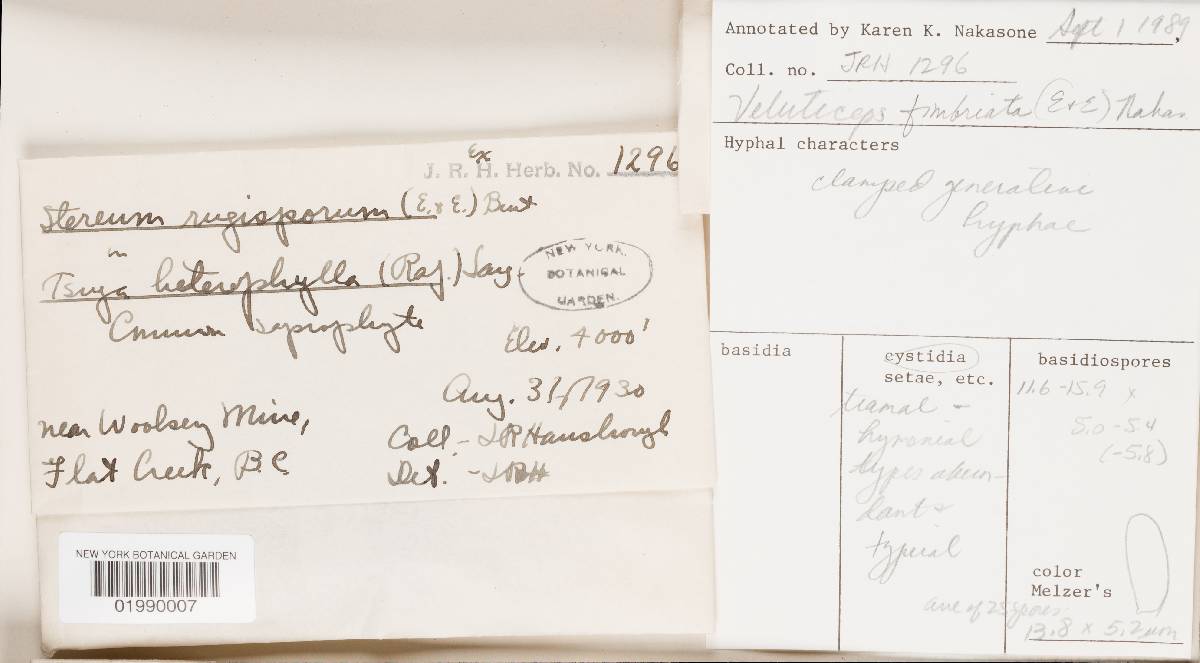 Ex
J. R. H. Herb. No. 1296
Stereum rugisporum (E. & E.) Burt
on
Tsuga heterophylla (Raf.) Sarg.
NEW YORK
BOTANICAL
GARDEN.
Common saprophyte
Elev. 4000'
Aug. 31/1930
near Woolsey Mine,
Flat Creek, B C
Coll. - J R Hansbrough
Det. - JRH
NEW YORK BOTANICAL GARDEN
01990007
Annotated by Karen K. Nakasone Sept 1 1989,
Coll. no. JRH 1296
Veluticeps fimbriata (E & E) Nakas
Hyphal characters
clamped generative
hyphae
basidia
cystidia
setae, etc.
tramal -
hymenial
types abun-
dant &
typical
basidiospores
11.6-15.9 x
5.0-5.4
(-5.8)
color
Melzer's
ave of 25 spores:
13.8 x 5.2 µm